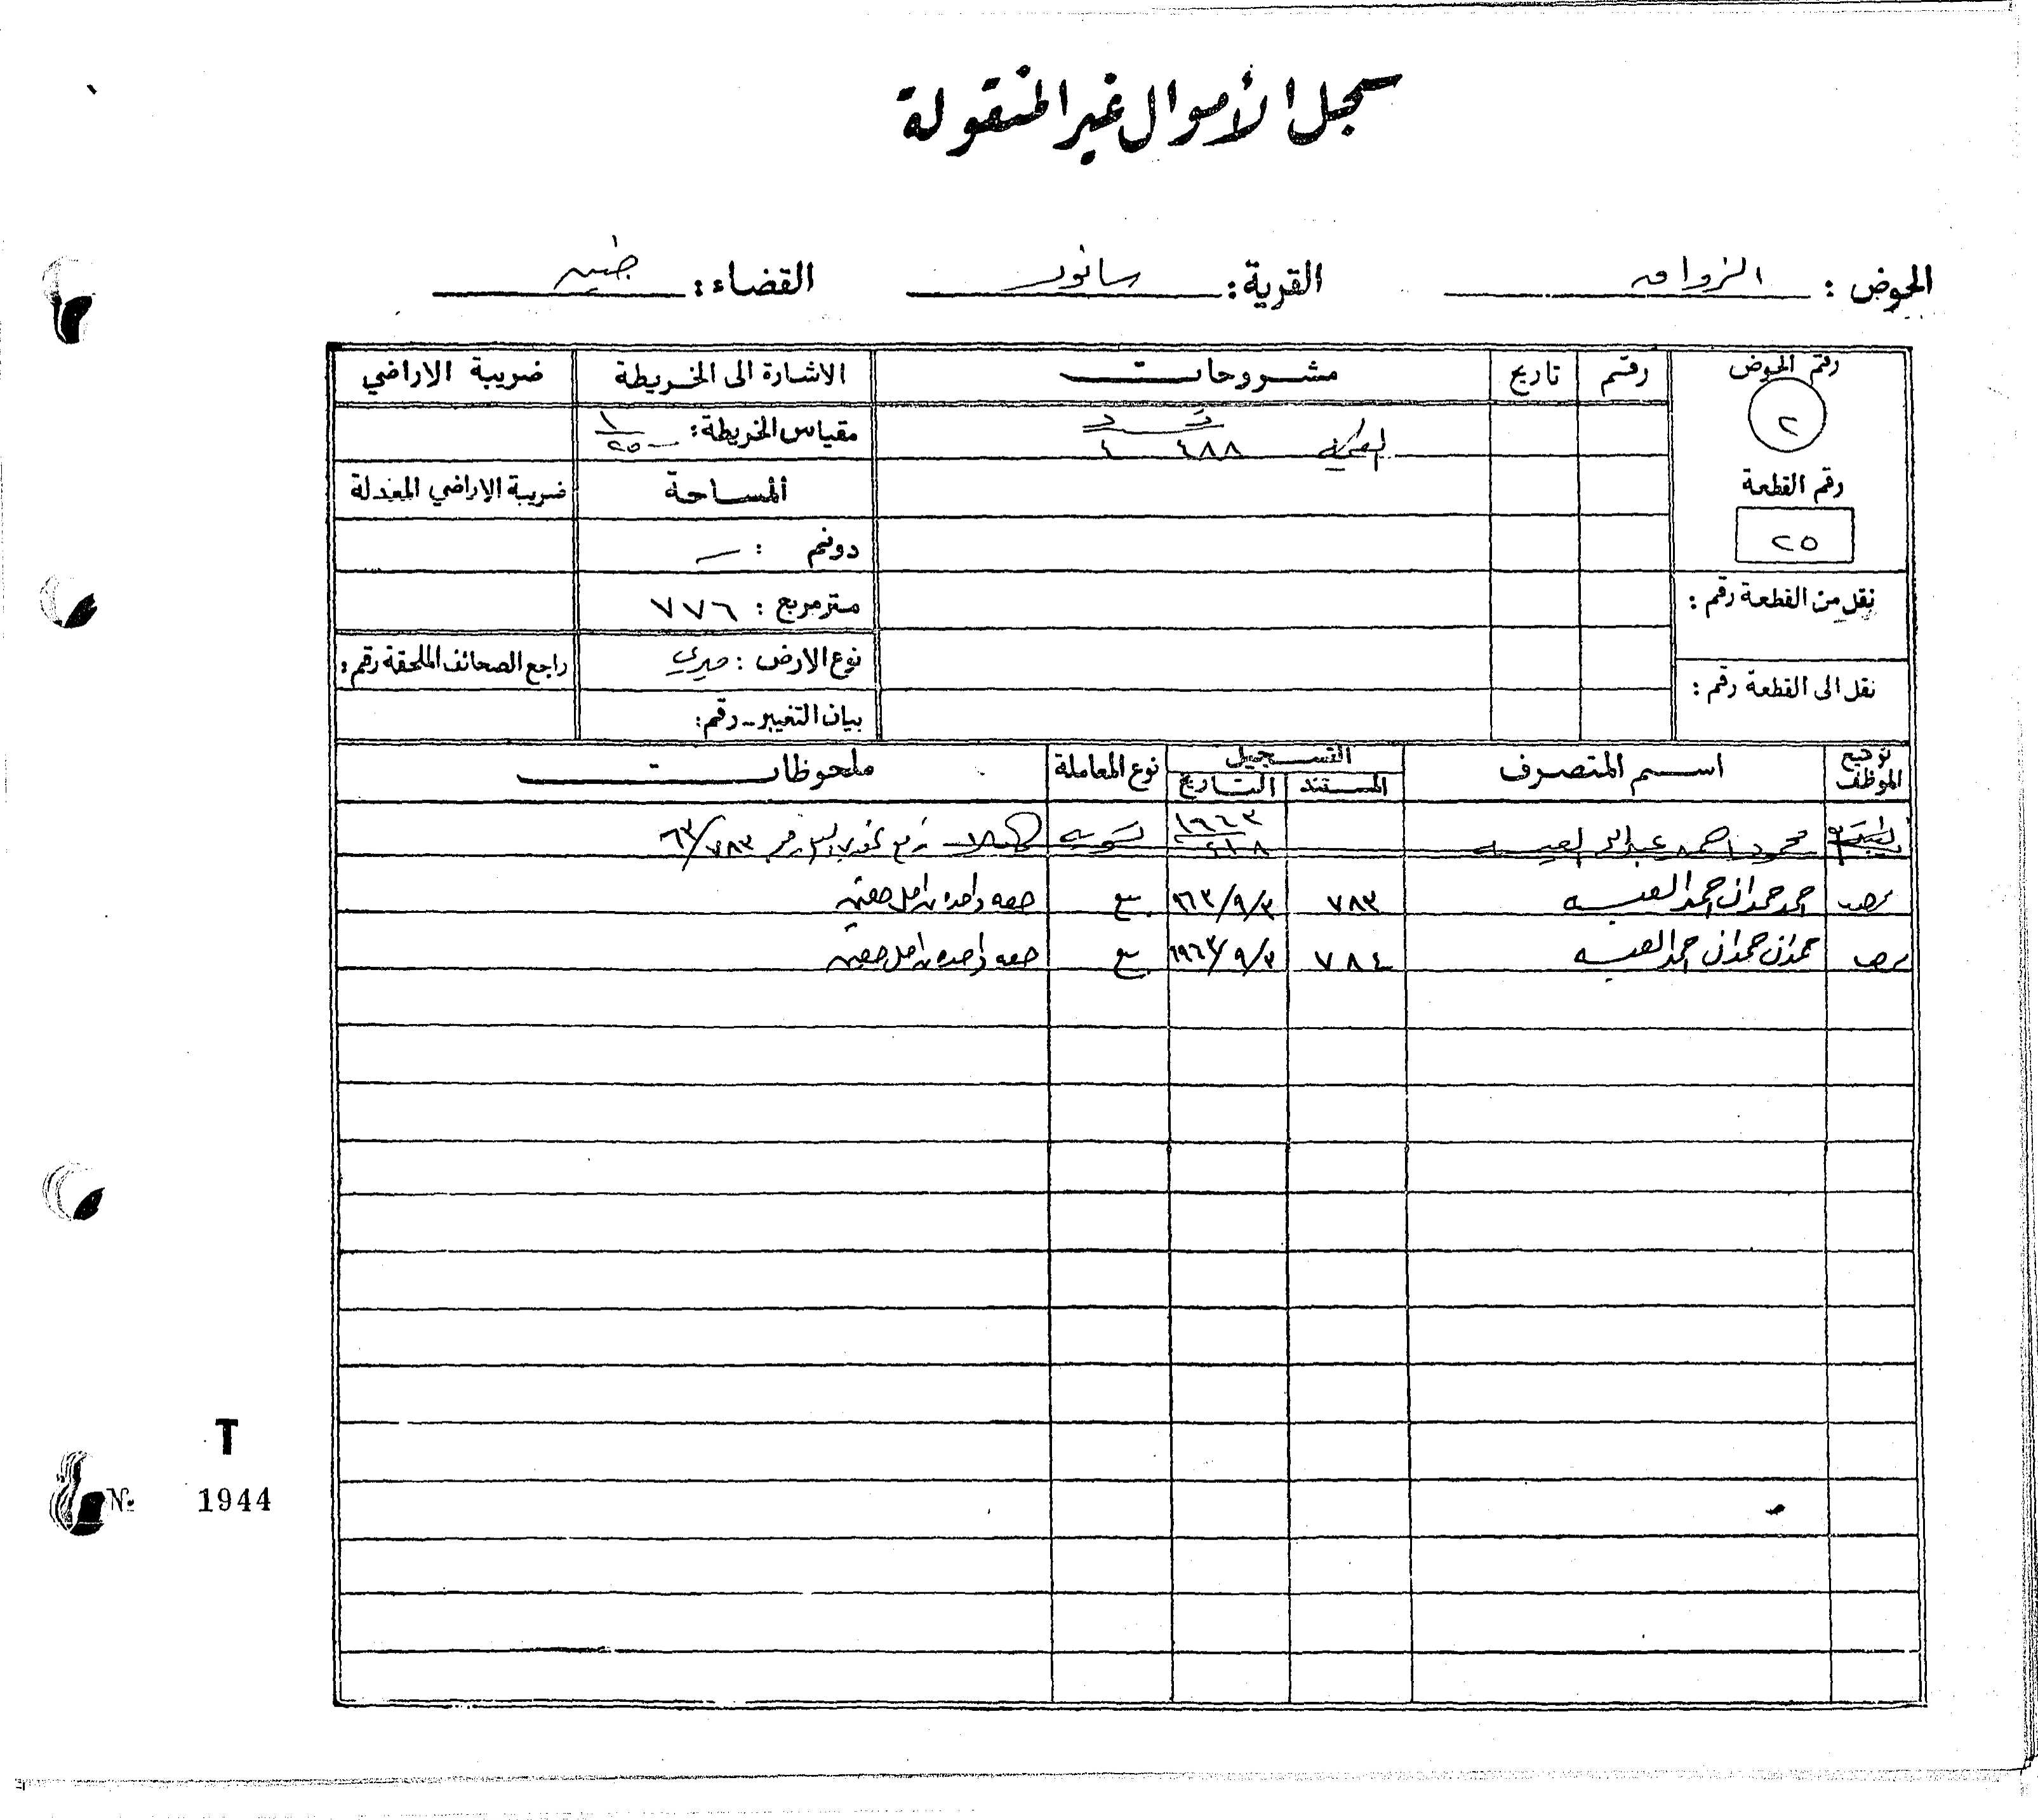 سجل الأموال غير المنقولة
الحوض : الزواق القرية : سانور القضاء : جنين
رقم الحوض رقم تاريخ مشروحات الاشارة الى الخريطة ضريبة الاراضي
٢ ٤٨٨ ٤ مقياس الخريطة : ١/٢٥٠٠
رقم القطعة المساحة ضريبة الاراضي المعدلة
٢٥ دونم : —
نقل من القطعة رقم : متر مربع : ٧٧٦
نوع الارض : ميري راجع الصحائف الملحقة رقم :
نقل الى القطعة رقم :
بيان التغيير - رقم :
توقيع الموظف اسم المتصرف التسجيل نوع المعاملة ملحوظات
المستند التاريخ
محمود احمد عبدالله تسويه ٦٣/٧٨٣
احمد حمدان احمد ٧٨٣ ٩٦٣/٩/٣ بيع حصه واحده من اصل حصتين
حمدان حمدان احمد ٧٨٤ ١٩٦٣/٩/٣ بيع حصه واحده من اصل حصتين
T
№ 1944